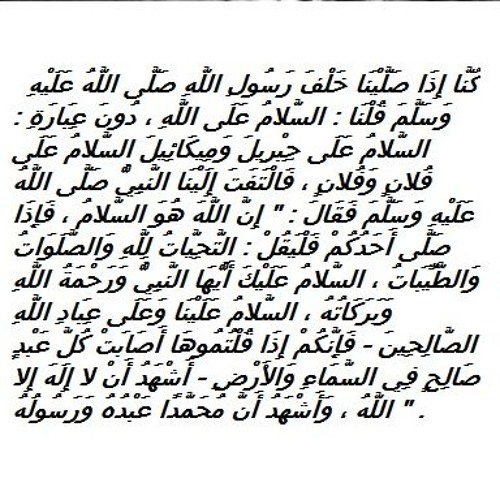 كُنَّا إِذَا صَلَّيْنَا خَلْفَ رَسُولِ اللَّهِ صَلَّى اللَّهُ عَلَيْهِ
وَسَلَّمَ قُلْنَا : السَّلامُ عَلَى اللَّهِ ، دُونَ عِبَارَةِ :
السَّلامُ عَلَى جِبْرِيلَ وَمِيكَائِيلَ السَّلامُ عَلَى
فُلانٍ وَفُلانٍ ، فَالْتَفَتَ إِلَيْنَا النَّبِيُّ صَلَّى اللَّهُ
عَلَيْهِ وَسَلَّمَ فَقَالَ : " إِنَّ اللَّهَ هُوَ السَّلامُ ، فَإِذَا
صَلَّى أَحَدُكُمْ فَلْيَقُلْ : التَّحِيَّاتُ لِلَّهِ وَالصَّلَوَاتُ
وَالطَّيِّبَاتُ ، السَّلامُ عَلَيْكَ أَيُّهَا النَّبِيُّ وَرَحْمَةُ اللَّهِ
وَبَرَكَاتُهُ ، السَّلامُ عَلَيْنَا وَعَلَى عِبَادِ اللَّهِ
الصَّالِحِينَ - فَإِنَّكُمْ إِذَا قُلْتُمُوهَا أَصَابَتْ كُلَّ عَبْدٍ
صَالِحٍ فِي السَّمَاءِ وَالأَرْضِ - أَشْهَدُ أَنْ لا إِلَهَ إِلا
اللَّهُ ، وَأَشْهَدُ أَنَّ مُحَمَّدًا عَبْدُهُ وَرَسُولُهُ " .